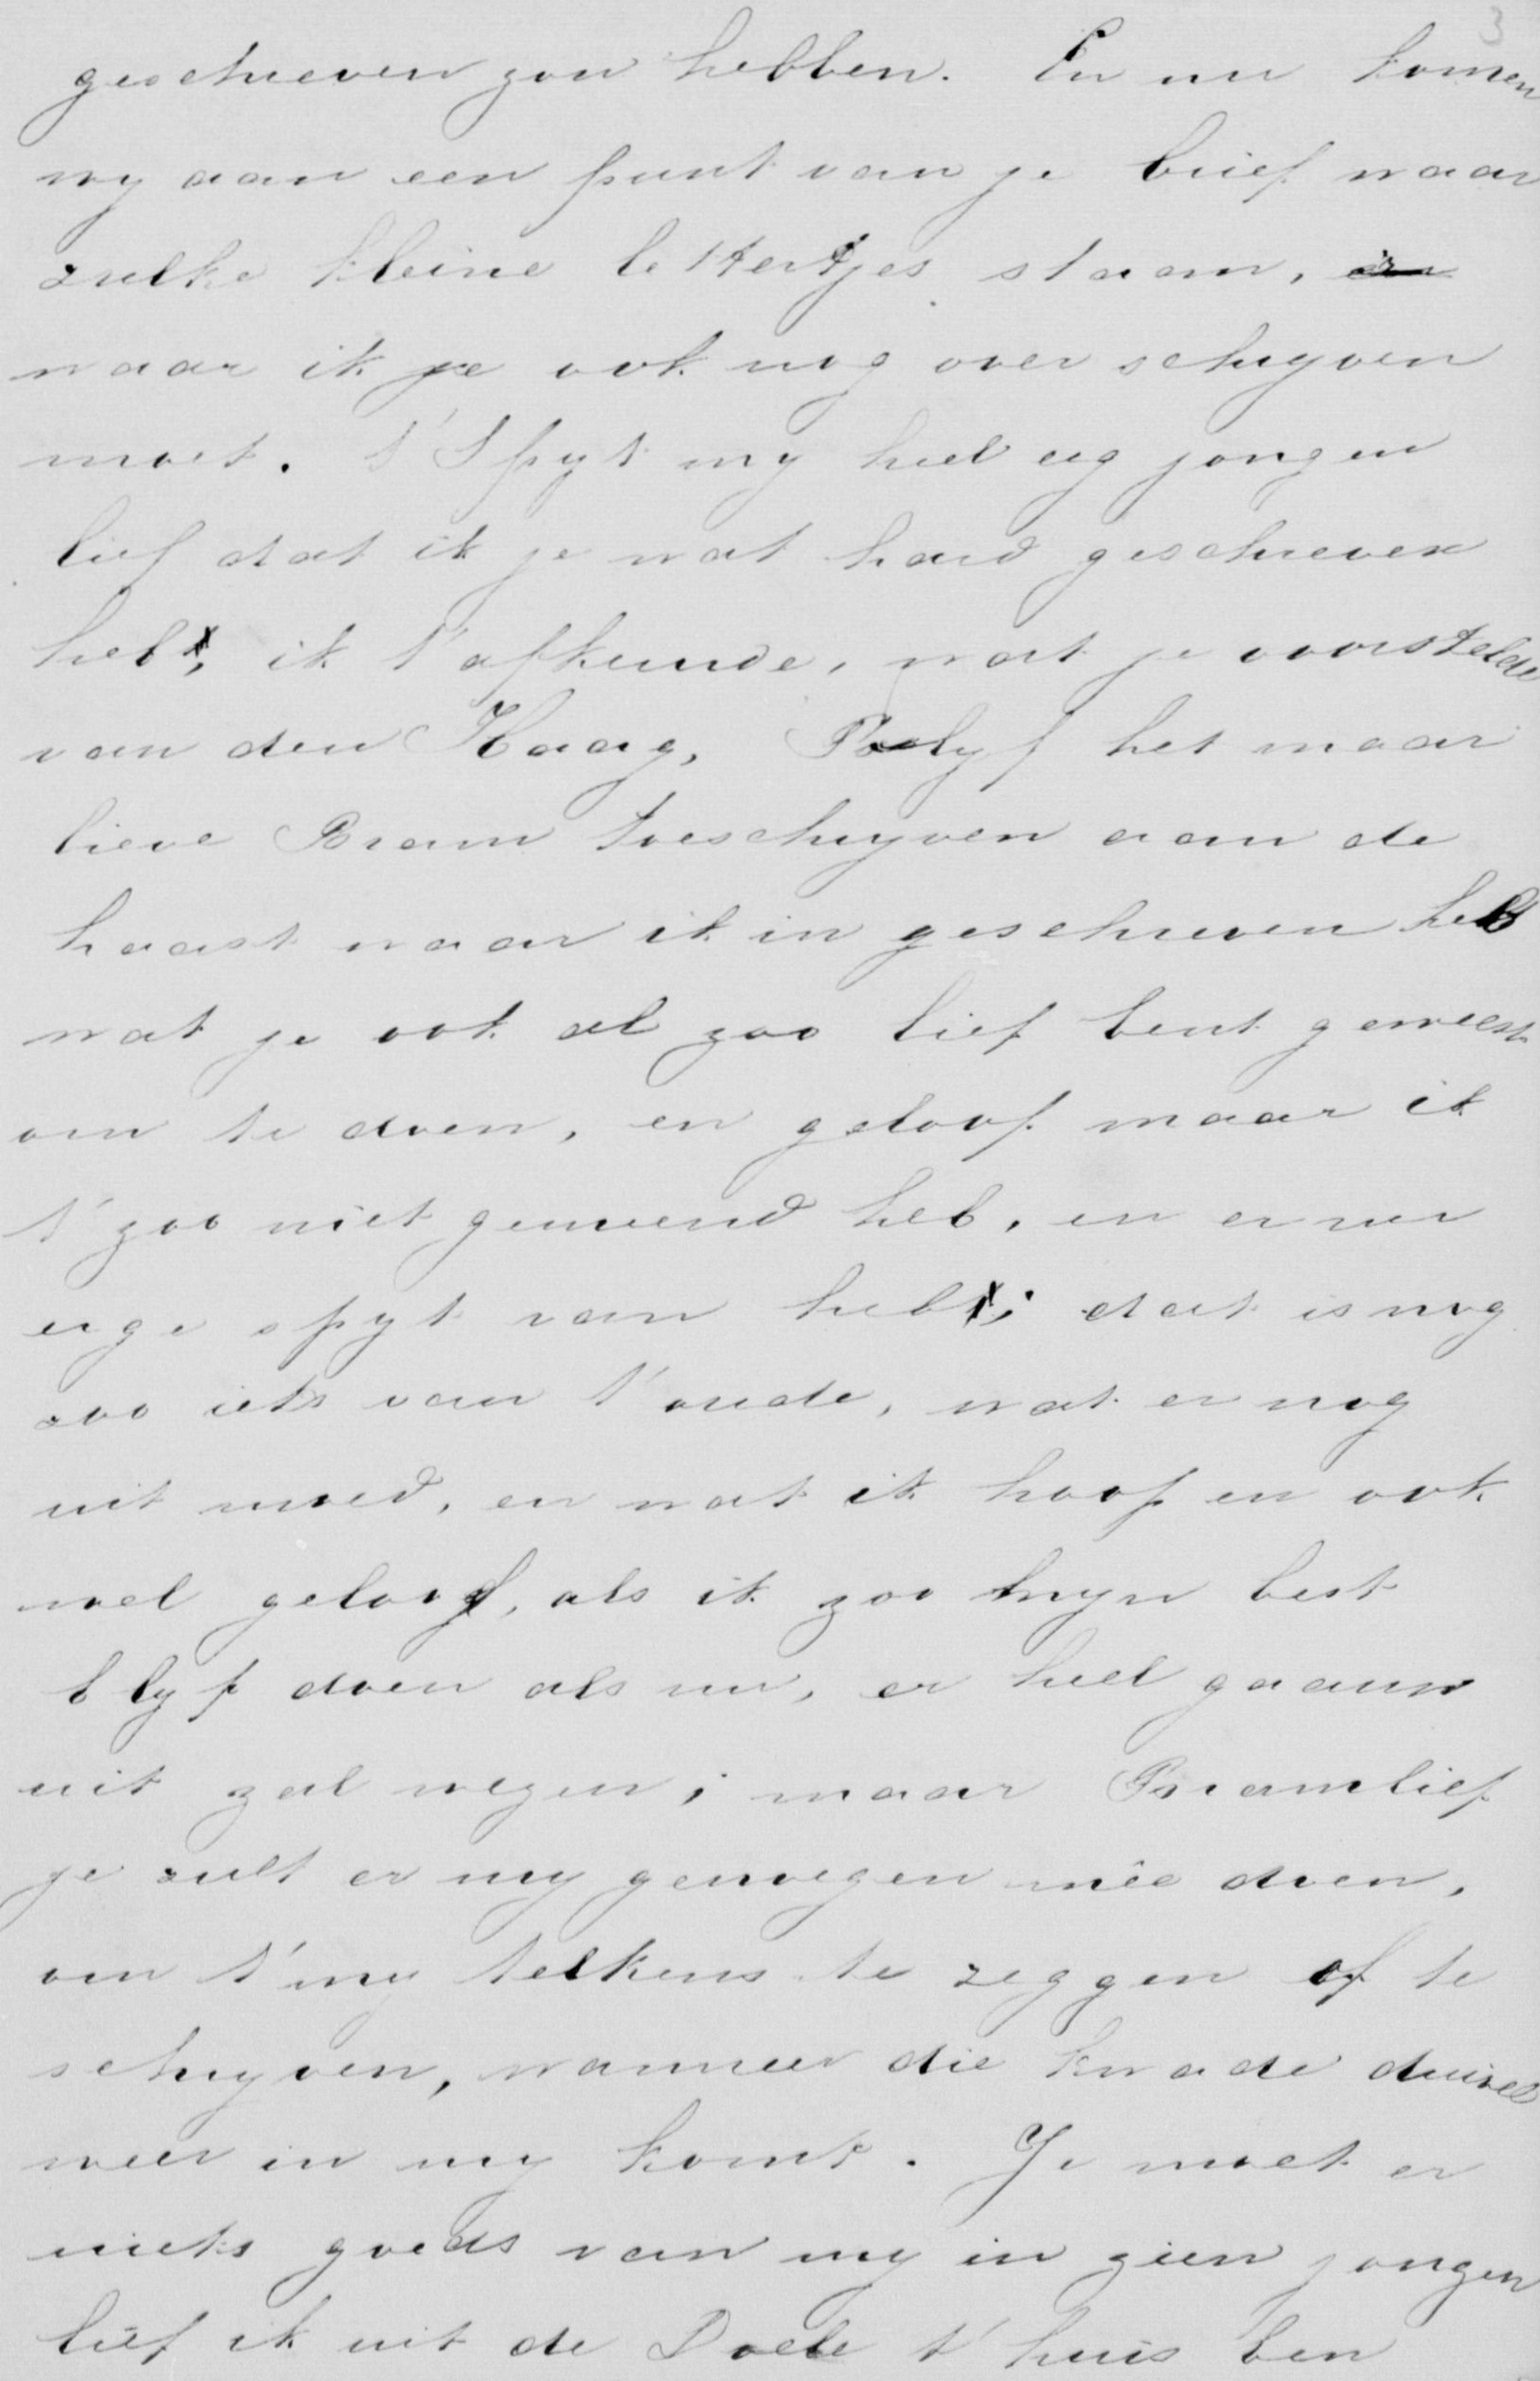 3
geschreven zou hebben. En nu komen
wy aan een punt van je brief waar
zulke kleine lettertjes staan,
waar ik je ook nog over schryven
moet. t'Spyt my heel erg jongen
lief dat ik je wat hard geschreven
heb, ik t'afkeurde, wat je voorstelde
van den Haag, Blyf het maar
lieve Bram toeschryven aan de
haast waar ik in geschreven heb
wat je ook al zoo lief bent geweest
om te doen, en geloof maar ik
t'zoo niet gemeend heb, en er nu
erge spyt van heb; dat is nog
zoo iets van t'oude, wat er nog
uit moed, en wat ik hoop en ook
wel geloof, als ik zoo myn best
blyf doen als nu, er heel gaauw
uit zal wezen; maar Bramlief
je zult er my genoegen mêe doen,
om t'my telkens te zeggen of te
schryven, wanneer die kwade duivel
weer in my komt. Je moet er
niets goeds van my in zien jongen
lief ik uit de Doele t'huis ben